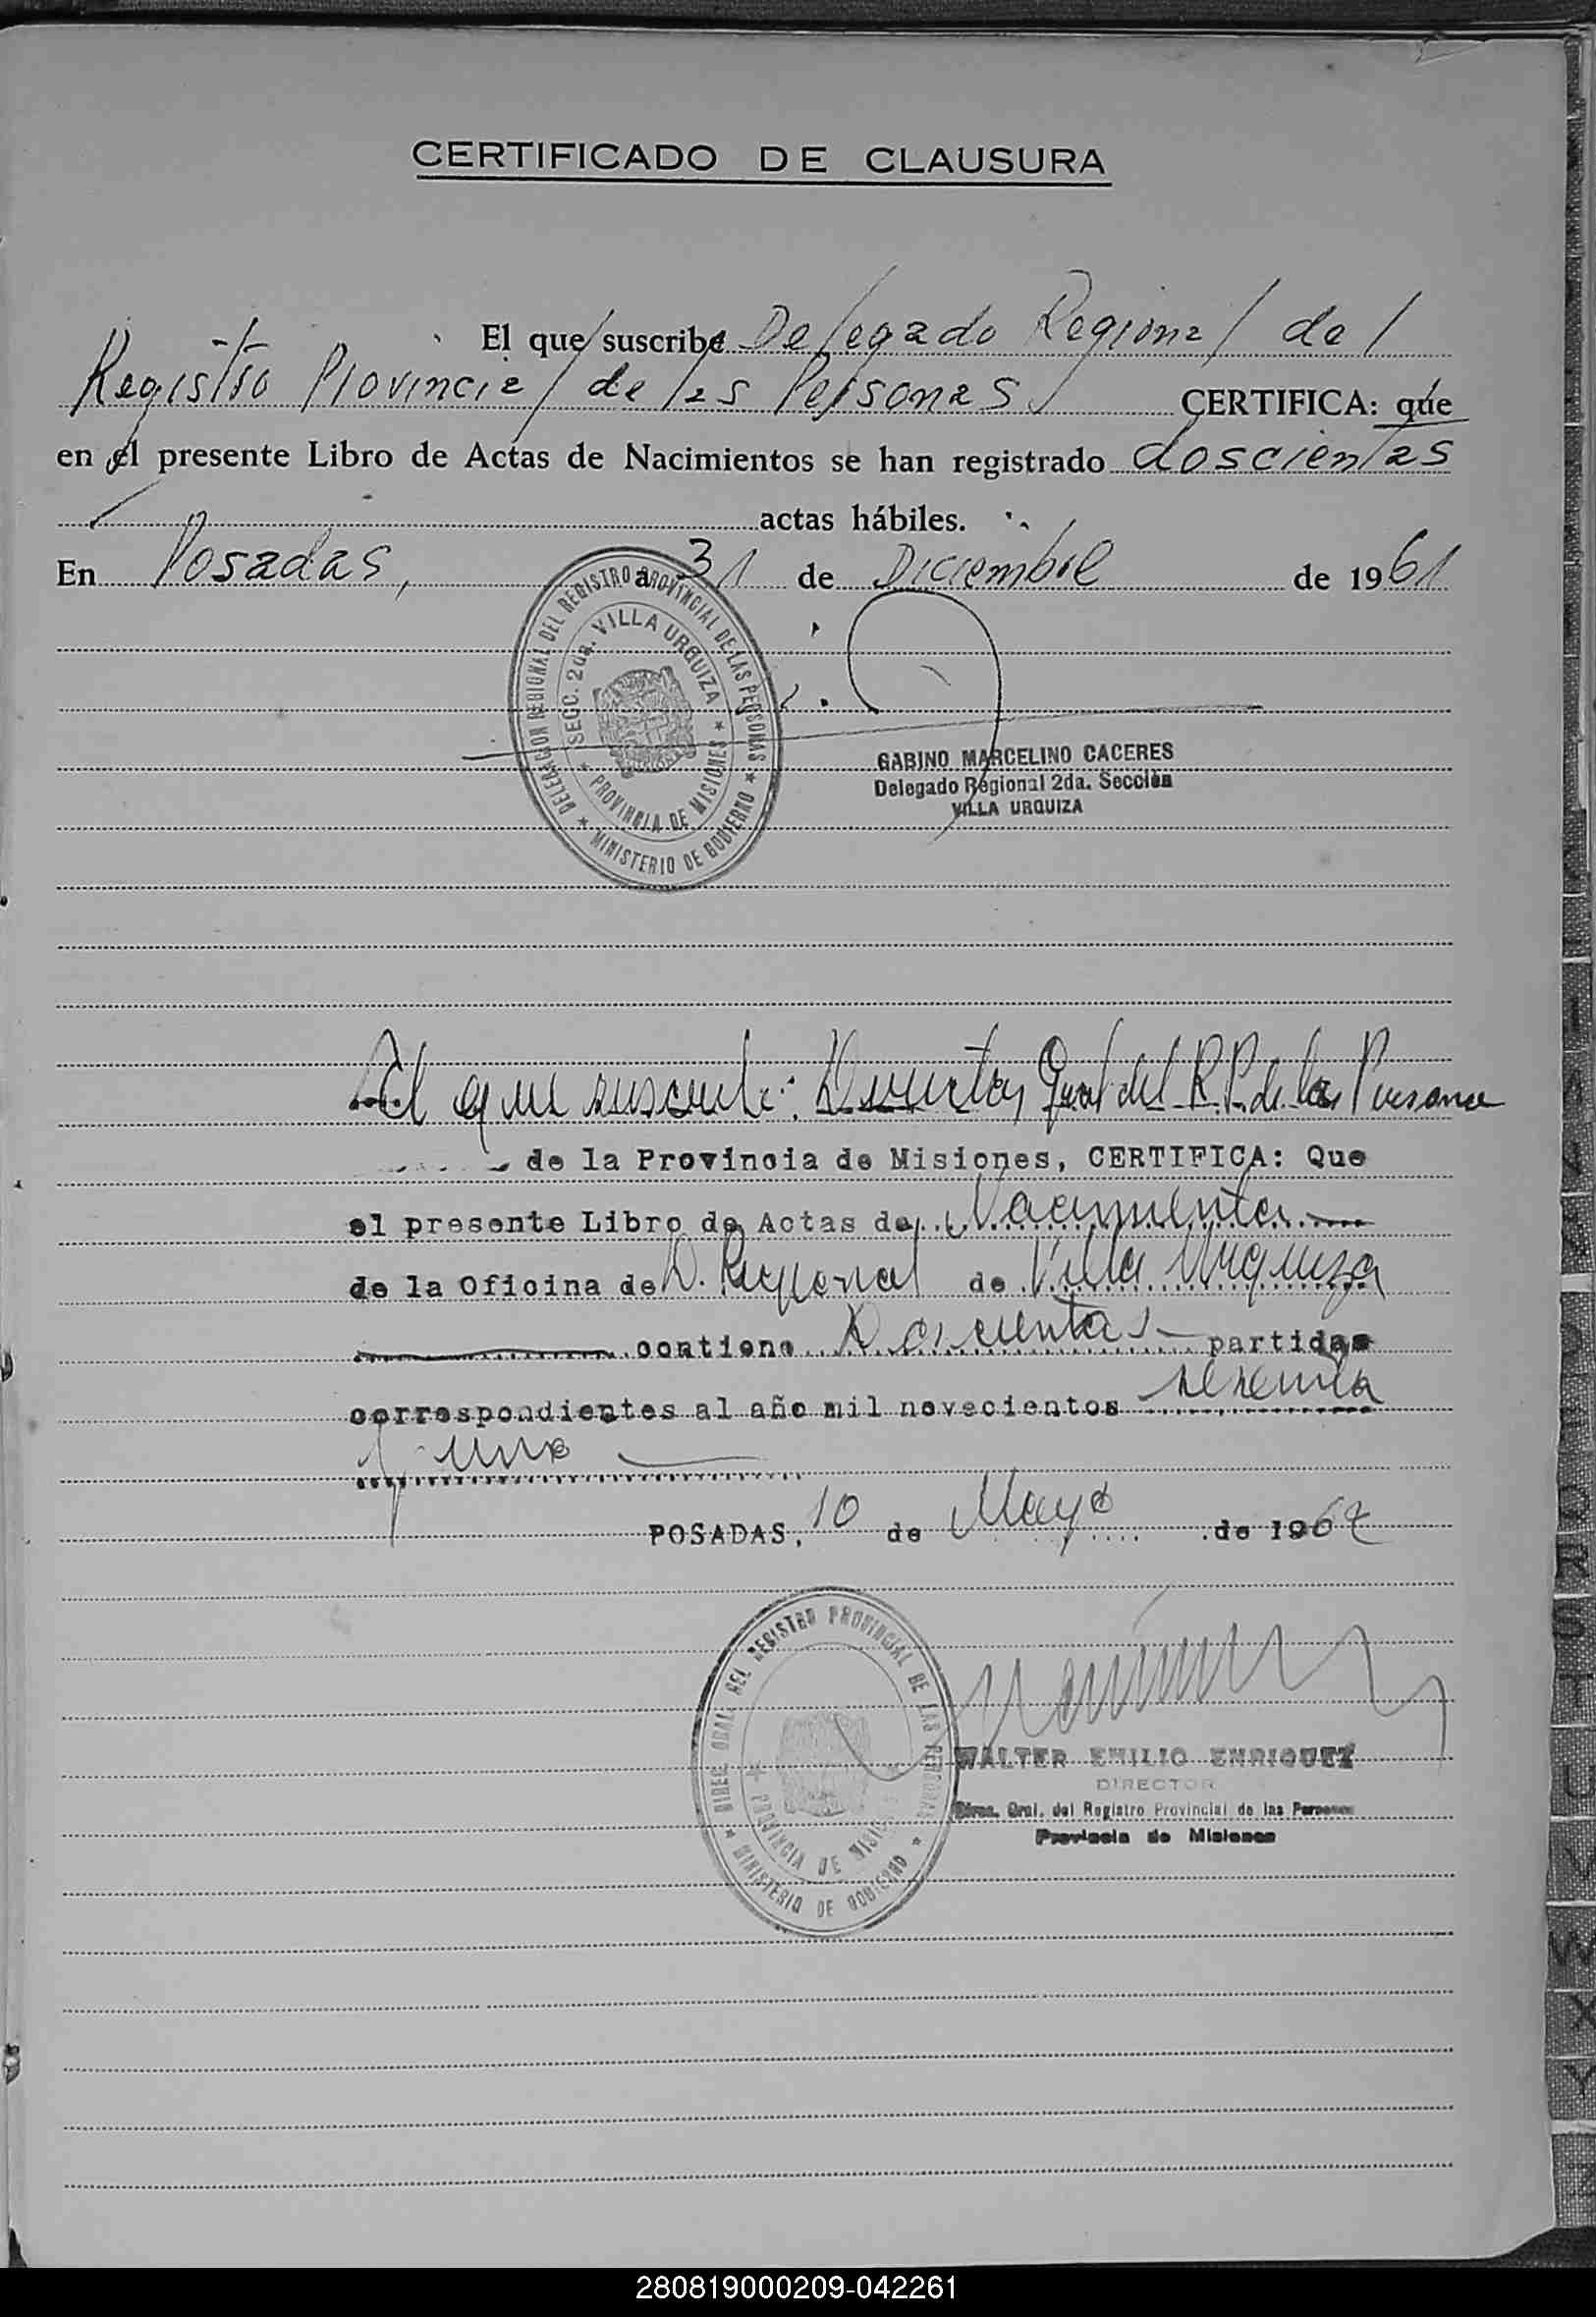 CERTIFICADO DE CLAUSURA
El que suscribe Delegado Regional del
Registro Provincial de las Personas CERTIFICA: que
en el presente Libro de Actas de Nacimientos se han registrado doscientas
actas hábiles.
En Posadas, a 31 de Diciembre de 1961
DELEGACION REGIONAL DEL REGISTRO PROVINCIAL DE LAS PERSONAS
SECC. 2da. VILLA URQUIZA
PROVINCIA DE MISIONES
MINISTERIO DE GOBIERNO
GABINO MARCELINO CACERES
Delegado Regional 2da. Sección
VILLA URQUIZA
El que suscribe: Director Gral del R.P. de las Personas
de la Provincia de Misiones, CERTIFICA: Que
el presente Libro de Actas de Nacimientos
de la Oficina de D. Regional de Villa Urquiza
contiene Doscientas partidas
correspondientes al año mil novecientos sesenta
y uno
POSADAS, 10 de Mayo de 1962
DIREC. GRAL. DEL REGISTRO PROVINCIAL DE LAS PERSONAS
PROVINCIA DE MISIONES
MINISTERIO DE GOBIERNO
WALTER EMILIO ENRIQUEZ
DIRECTOR
Direc. Gral. del Registro Provincial de las Personas
Provincia de Misiones
280819000209-042261